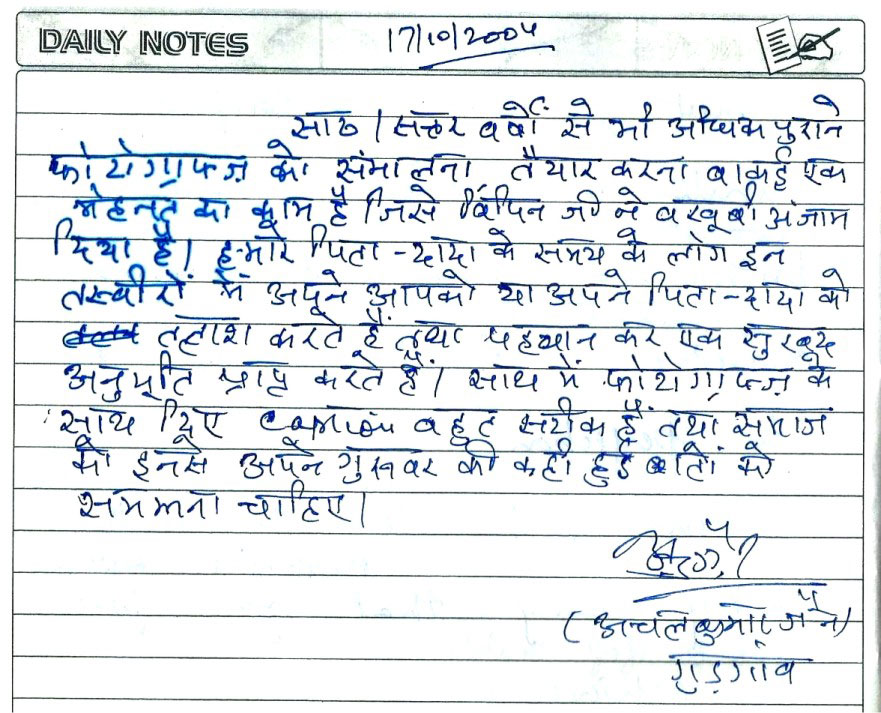 DAILY NOTES
17/10/2004
साठ / सत्तर वर्षों से भी अधिक पुराने
फोटोग्राफ्ज़ को संभालना तैयार करना वाकई एक
मेहनत का काम है जिसे विपिन जी ने बखूबी अंजाम
दिया है। हमारे पिता-दादा के समय के लोग इन
तस्वीरों में अपने आपको या अपने पिता-दादा को
तलाश करते हैं तथा पहचान कर एक सुखद
अनुभूति प्राप्त करते हैं। साथ में फोटोग्राफ्ज़ के
साथ दिए Caption बहुत सटीक हैं तथा समाज
को इनसे अपने गुरुवर की कही हुई बातों को
समझना चाहिए।
(अचल कुमार जैन)
गुड़गांव